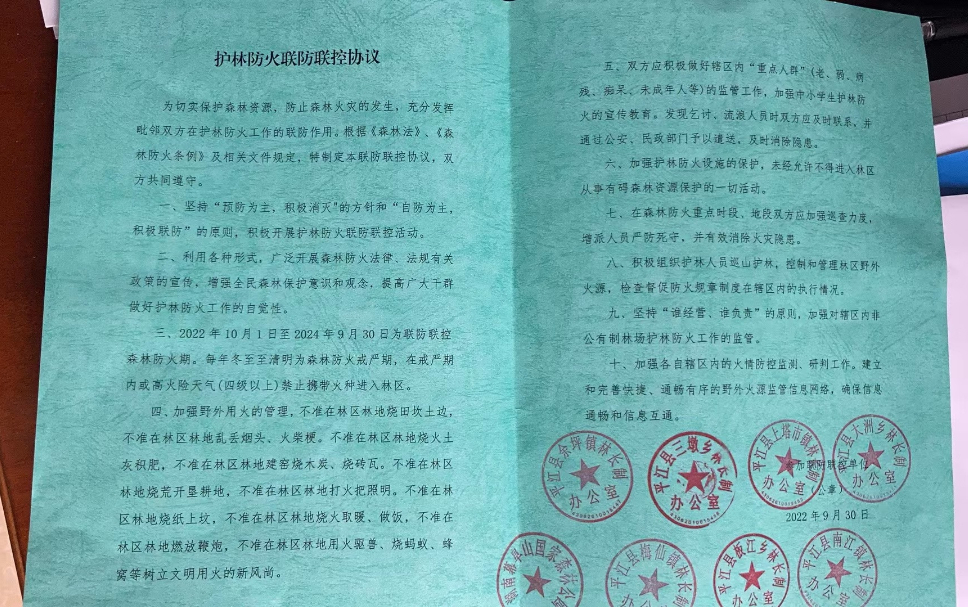 护林防火联防联控协议
为切实保护森林资源，防止森林火灾的发生，充分发挥
毗邻双方在护林防火工作的联防作用。根据《森林法》、《森
林防火条例》及相关文件规定，特制定本联防联控协议，双
方共同遵守。
一、坚持“预防为主，积极消灭”的方针和“自防为主，
积极联防”的原则，积极开展护林防火联防联控活动。
二、利用各种形式，广泛开展森林防火法律、法规有关
政策的宣传，增强全民森林保护意识和观念，提高广大干群
做好护林防火工作的自觉性。
三、2022年10月1日至2024年9月30日为联防联控
森林防火期。每年冬至至清明为森林防火戒严期，在戒严期
内或高火险天气(四级以上)禁止携带火种进入林区。
四、加强野外用火的管理，不准在林区林地烧田坎土边，
不准在林区林地乱丢烟头、火柴梗。不准在林区林地烧火土
灰积肥，不准在林区林地建窑烧木炭、烧砖瓦。不准在林区
林地烧荒开垦耕地，不准在林区林地打火把照明。不准在林
区林地烧纸上坟，不准在林区林地烧火取暖、做饭，不准在
林区林地燃放鞭炮，不准在林区林地用火驱兽、烧蚂蚁、蜂
窝等树立文明用火的新风尚。
五、双方应积极做好辖区内“重点人群”(老、弱、病、
残、痴呆、未成年人等)的监管工作，加强中小学生护林防
火的宣传教育。发现乞讨、流浪人员时双方应及时联系，并
通过公安、民政部门予以遣送，及时消除隐患。
六、加强护林防火设施的保护，未经允许不得进入林区
从事有碍森林资源保护的一切活动。
七、在森林防火重点时段、地段双方应加强巡查力度，
增派人员严防死守，并有效消除火灾隐患。
八、积极组织护林人员巡山护林，控制和管理林区野外
火源，检查督促防火规章制度在辖区内的执行情况。
九、坚持“谁经营、谁负责”的原则，加强对辖区内非
公有制林场护林防火工作的监管。
十、加强各自辖区内的火情防控监测、研判工作。建立
和完善快捷、通畅有序的野外火源监管信息网络，确保信息
通畅和信息互通。
平江县余坪镇林长制
办公室
平江县三墩乡林长制
办公室
平江县上塔市镇林长制
办公室
平江县大洲乡林长制
办公室
参加联防联控单位
(公章)
2022年9月30日
平江县梅仙镇林长制
平江县板江乡林长制
办公室
平江县南江镇林长制
办公室